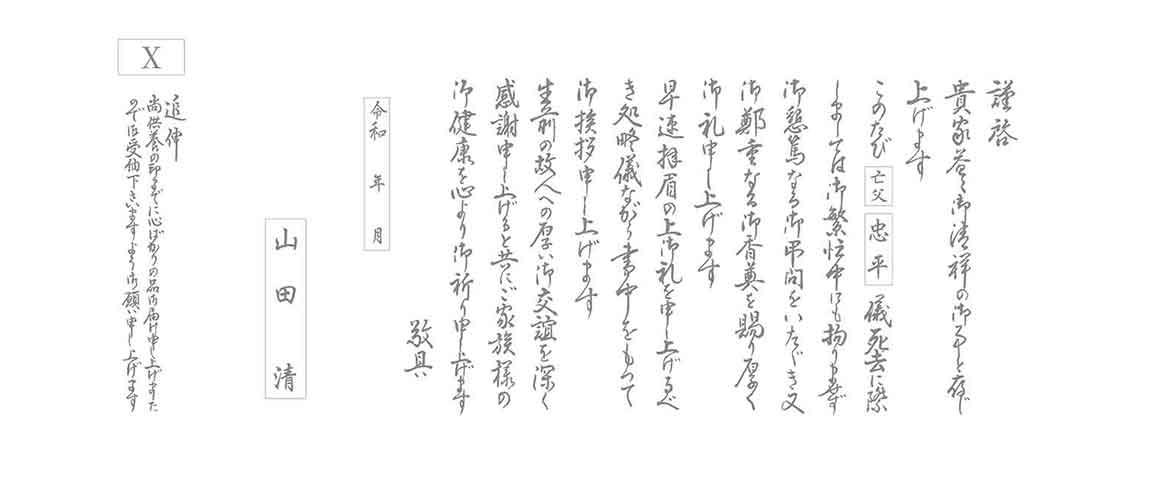 謹啓
貴家益々御清祥の御事と存じ
上げます
このたび 亡父 忠平 儀死去に際
しましては御繁忙中にも拘りませず
御懇篤なる御弔問をいただき又
御鄭重なる御香奠を賜り厚く
御礼申し上げます
早速拝眉の上御礼を申し上げるべ
き処略儀ながら書中をもって
御挨拶申し上げます
生前の故人への厚い御交誼を深く
感謝申し上げると共にご家族様の
御健康を心より御祈り申し上げます
敬具
令和 年 月
山田 清
X
追伸
尚供養の印までに心ばかりの品御届け申し上げました
のでご受納下さいますよう御願い申し上げます